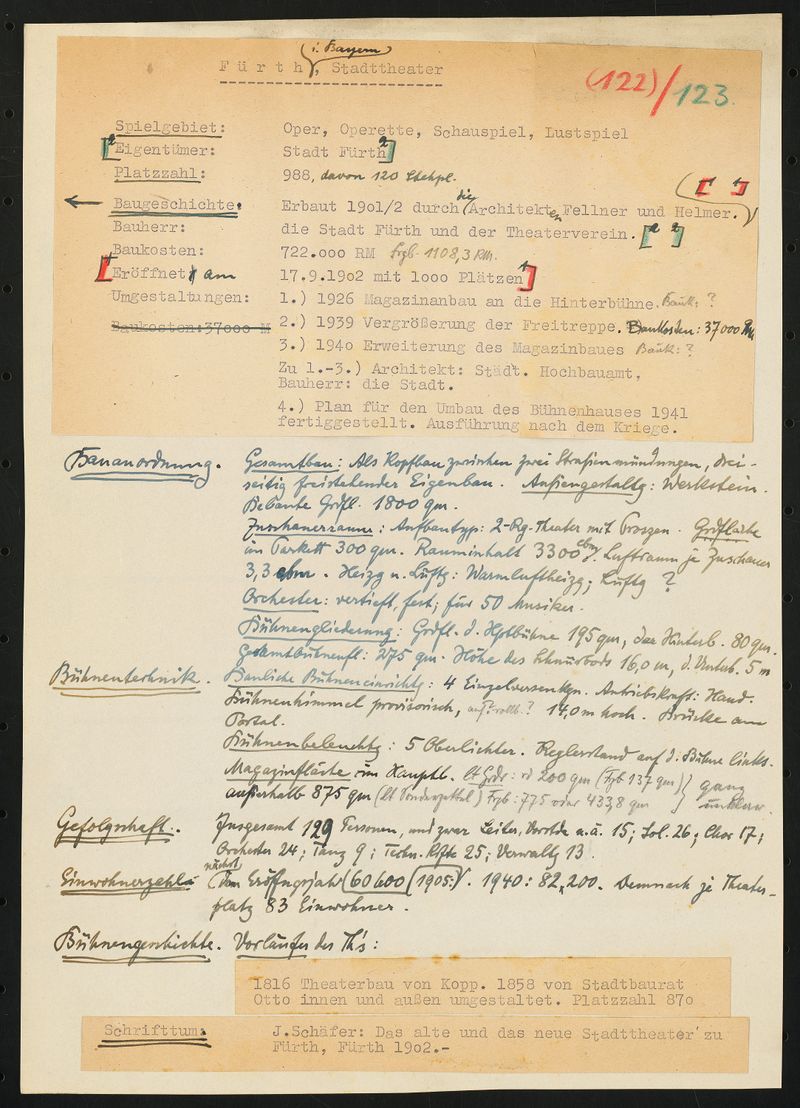 i. Bayern
Fürth, Stadttheater
(122)/123.
Spielgebiet: Oper, Operette, Schauspiel, Lustspiel
Eigentümer: Stadt Fürth
Platzzahl: 988, davon 120 Stehpl.
Baugeschichte: Erbaut 19o1/2 durch die Architekten Fellner und Helmer.
Bauherr: die Stadt Fürth und der Theaterverein.
Baukosten: 722.ooo RM Frgb. 1108,3 RM.
Eröffnet am 17.9.19o2 mit 1ooo Plätzen
Umgestaltungen: 1.) 1926 Magazinanbau an die Hinterbühne. Bauk: ?
Baukosten: 37ooo M 2.) 1939 Vergrößerung der Freitreppe. Baukosten: 37000 RM
3.) 194o Erweiterung des Magazinbaues Bauk: ?
Zu 1.-3.) Architekt: Städt. Hochbauamt,
Bauherr: die Stadt.
4.) Plan für den Umbau des Bühnenhauses 1941
fertiggestellt. Ausführung nach dem Kriege.
Bauanordnung. Gesamtbau: Als Kopfbau zwischen zwei Straßenmündungen, drei-
seitig freistehender Eigenbau. Außengestaltg: Werkstein.
Bebaute Grdfl. 1800 qm.
Zuschauerraum: Aufbautyp: 2-Rg-Theater mit Proszen. Grdfläche
im Parkett 300 qm. Rauminhalt 3300 cbm. Luftraum je Zuschauer
3,3 cbm. Heizg u. Lüftg: Warmluftheizg; Lüftg ?
Orchester: vertieft, fest; für 50 Musiker.
Bühnengliederung: Grdfl. d. Hptbühne 195 qm, der Hinterb. 80 qm.
Gesamtbühnenfl: 275 qm. Höhe des Schnürbods 16,0 m, d. Unterb. 5 m
Bühnentechnik. Bauliche Bühneneinrichtg: 4 Einzelversenkgn. Antriebskraft: Hand.
Bühnenhimmel provisorisch, aufrollb.? 14,0 m hoch. Brücke am
Portal.
Bühnenbeleuchtg: 5 Oberlichter. Reglerstand auf d. Bühne links.
Magazinfläche im Hauptb. lt Grdr: rd 200 qm (Frgb 137 qm) } ganz
außerhalb 875 qm (lt Sonderzettel) Frgb: 775 oder 433,8 qm } unklar.
Gefolgschaft. Insgesamt 129 Personen, und zwar Leiter, Vorstde u.ä. 15; Sol. 26; Chor 17;
Orchester 24; Tanz 9; Techn. Kräfte 25; Verwaltg 13.
nächst
Einwohnerzahl. Dem Eröffngsjahr 60600 (1905). 1940: 82,200. Demnach je Theater-
platz 83 Einwohner.
Bühnengeschichte. Vorläufer des Th's:
1816 Theaterbau von Kopp. 1858 von Stadtbaurat
Otto innen und außen umgestaltet. Platzzahl 87o
Schrifttum: J.Schäfer: Das alte und das neue Stadttheater zu
Fürth, Fürth 19o2.-